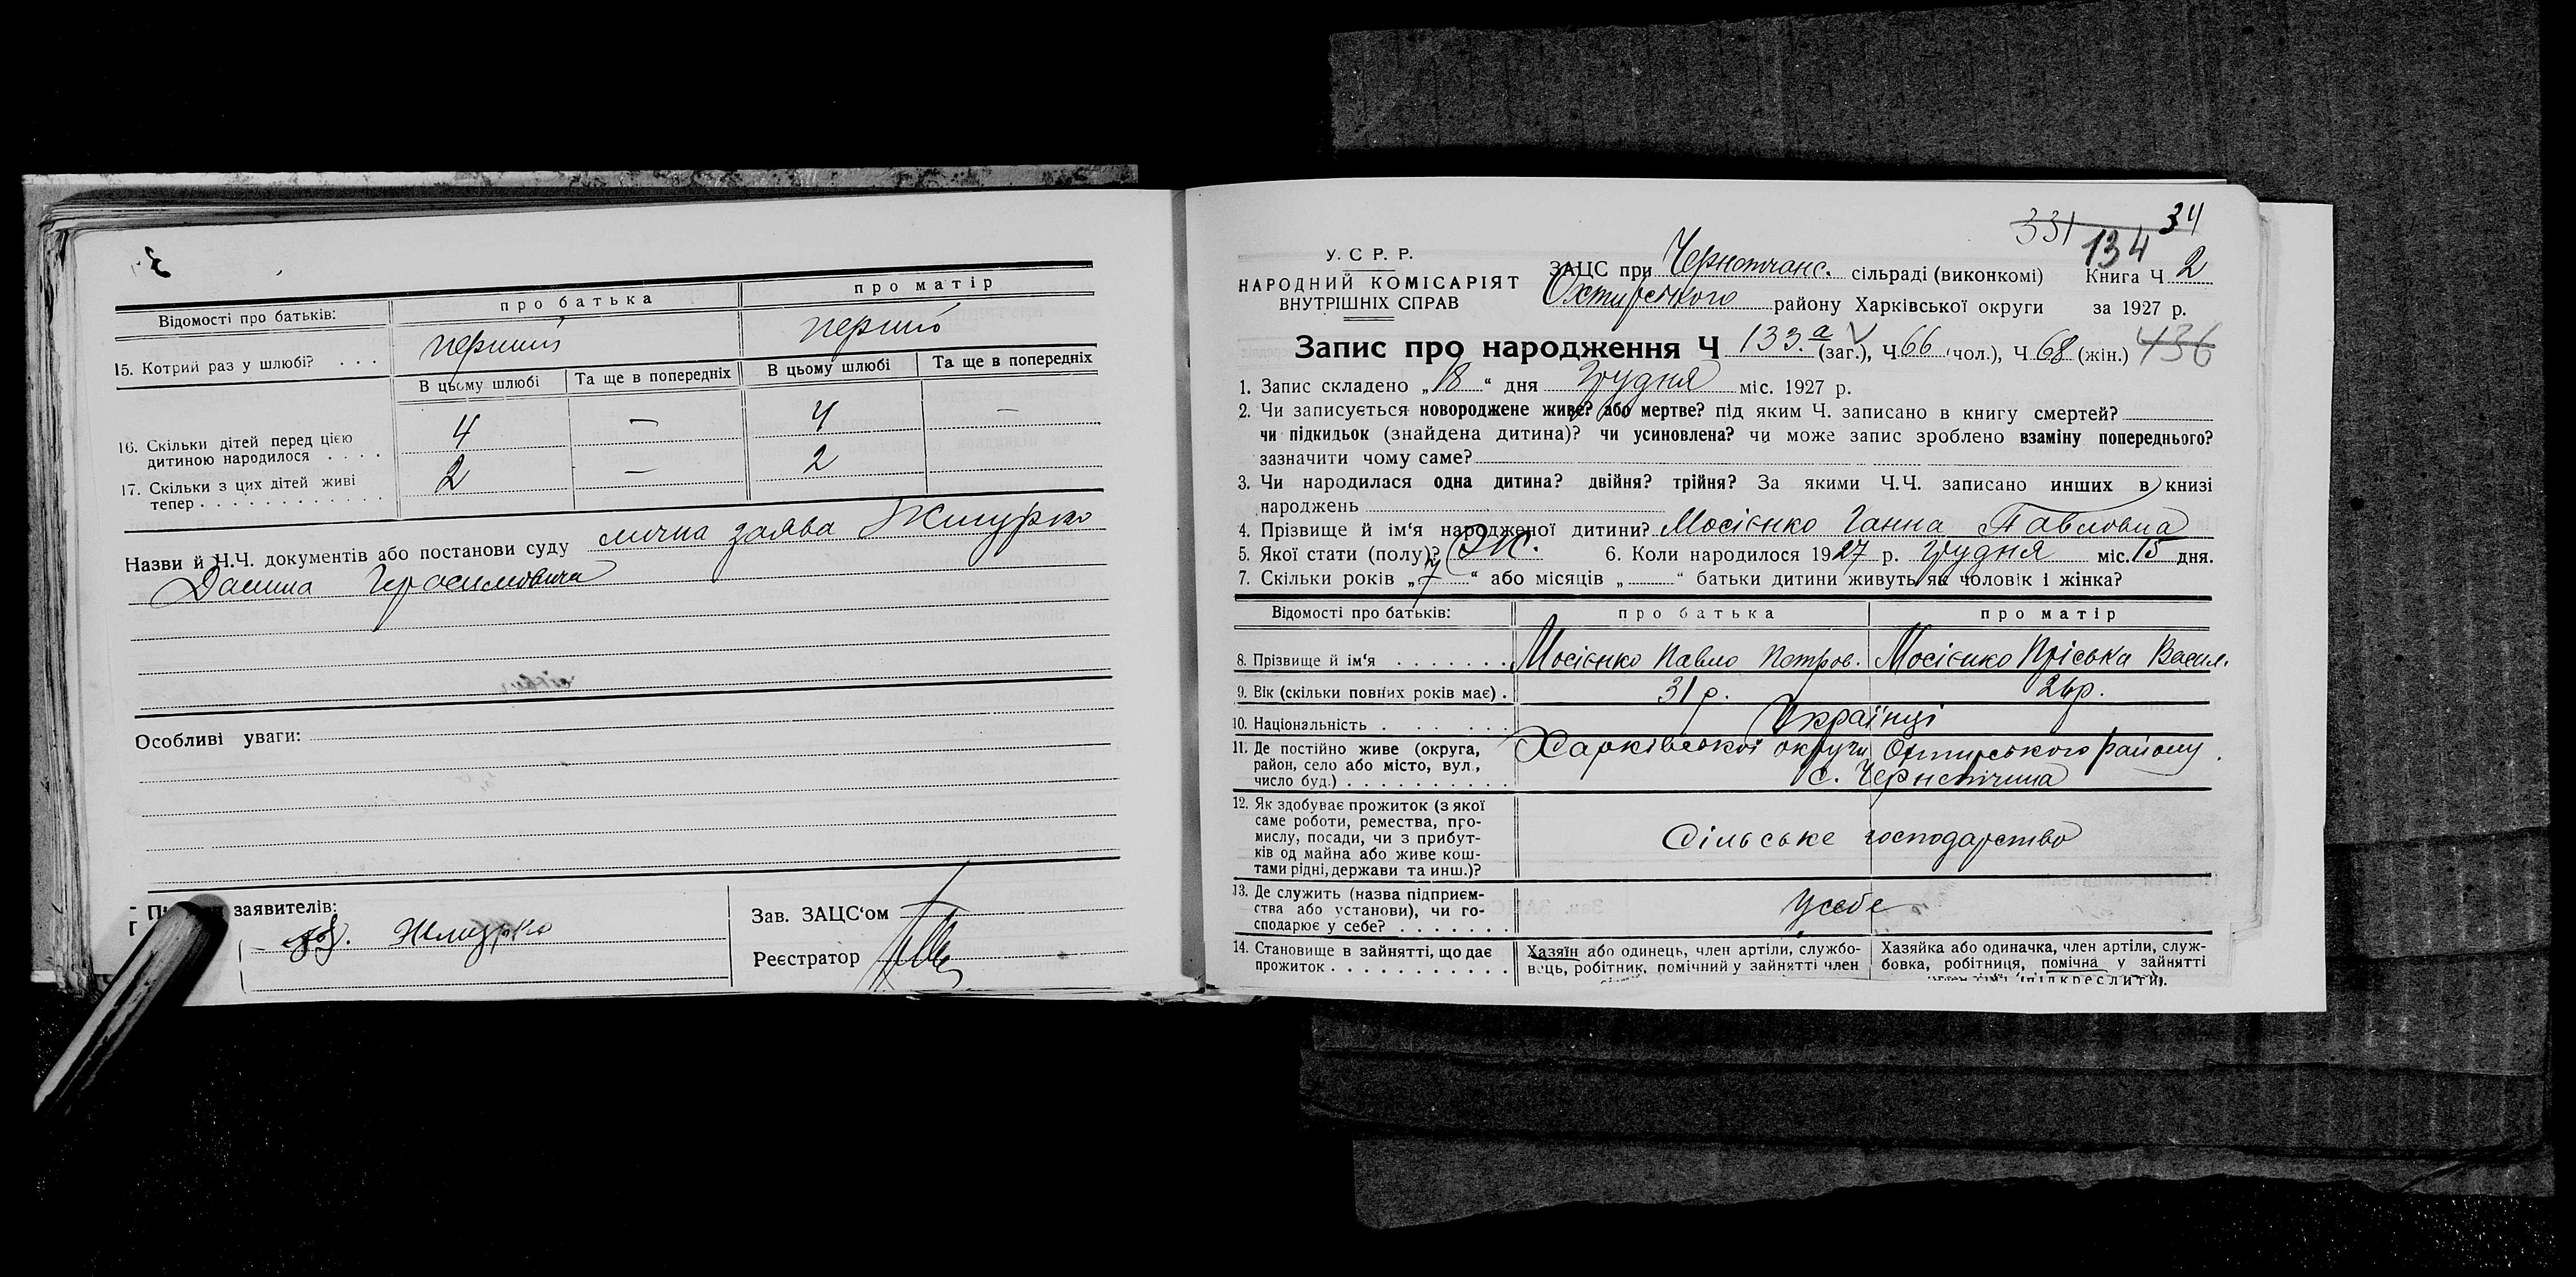 Відомості про батьків: про батька про матір
15. Котрий раз у шлюбі? . . . перший перший
В цьому шлюбі Та ще в попередніх В цьому шлюбі Та ще в попередніх
16. Скільки дітей перед цією
дитиною народилося . . . . 4 — 4 —
17. Скільки з цих дітей живі
тепер . . . . . . . . . . . . 2 — 2
Назви й Ч.Ч. документів або постанови суду лична заява Жмурко
Данила Герасимовича
Особливі уваги:
заявителів:
Жмурко
Зав. ЗАЦС‘ом
Реєстратор
331 34
134
У. С Р. Р.
НАРОДНИЙ КОМІСАРІЯТ
ВНУТРІШНІХ СПРАВ
ЗАЦС при Чернетчанс. сільраді (виконкомі) Книга Ч 2
Охтирського району Харківської округи за 1927 р.
Запис про народження Ч 133.а (заг.), Ч 66 (чол.), Ч 68 (жін.) 436
1. Запис складено „18“ дня Грудня міс. 1927 р.
2. Чи записується новороджене живе? або мертве? під яким Ч. записано в книгу смертей?
чи підкидьок (знайдена дитина)? чи усиновлена? чи може запис зроблено взаміну попереднього?
зазначити чому саме?
3. Чи народилася одна дитина? двійня? трійня? За якими Ч.Ч. записано инших в книзі
народжень
4. Прізвище й ім‘я народженої дитини? Мосієнко Ганна Павловна
5. Якої стати (полу)? Ж. 6. Коли народилося 1927 р. Грудня міс. 15 дня.
7. Скільки років „7“ або місяців „ “ батьки дитини живуть як чоловік і жінка?
Відомості про батьків: про батька про матір
8. Прізвище й ім‘я . . . . . . . Мосієнко Павло Петров. Мосієнко Пріська Васил.
9. Вік (скільки повних років має) . 31 р. 26 р.
10. Національність . . . . . . . . Українці
11. Де постійно живе (округа, Харківської округи Охтирського району
район, село або місто, вул.,
число буд.) . . . . . . . . . . с. Чернетчина
12. Як здобуває прожиток (з якої
саме роботи, ремества, про-
мислу, посади, чи з прибут-
ків од майна або живе кош-
тами рідні, держави та инш.)? Сільське господарство
13. Де служить (назва підприєм-
ства або установи), чи го-
сподарює у себе? . . . . . . . У себе
14. Становище в зайнятті, що дає
прожиток . . . . . . . . . . . .
Хазяїн або одинець, член артіли, службо-
вець, робітник, помічний у зайнятті член
Хазяйка або одиначка, член артіли, служ-
бовка, робітниця, помічна у зайнятті
(підкреслити).